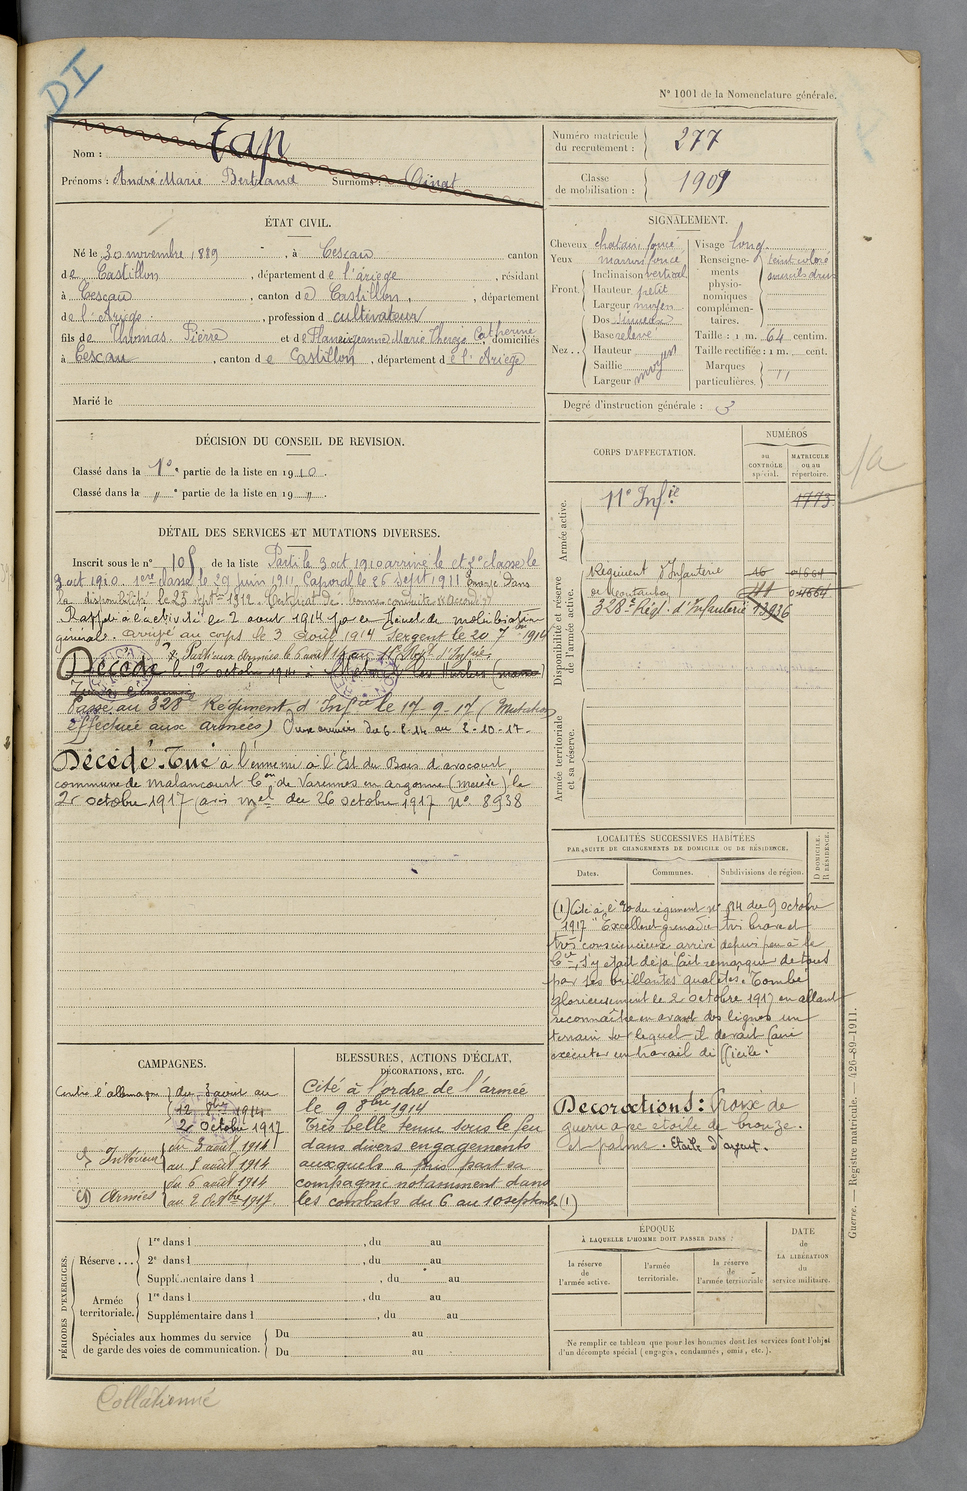 DI
N° 1001 de la Nomenclature générale.
Nom : Tap
Prénoms : André Marie Bertrand Surnoms : Ainat
Numéro matricule du recrutement : 277
Classe de mobilisation : 1909
ÉTAT CIVIL.
Né le 30 novembre 1889, à Cescau canton
de Castillon, département de l'ariège, résidant
à Cescau, canton de Castillon, département
de l'Ariège, profession de cultivateur
fils de Thomas Pierre et de Planeix Jeanne Marie Thérèze Catherine domiciliés
à Cescau, canton de Castillon, département de l'Ariège
Marié le
SIGNALEMENT.
Cheveux chatain foncé
Yeux marron foncé
Front. Inclinaison vertical
Hauteur petit
Largeur moyen
Nez... Dos sinueux
Base relevé
Hauteur
Saillie moyen
Largeur
Visage long
Renseignements physionomiques complémentaires. teint coloré
sourcils drus
Taille : 1 m. 64 centim.
Taille rectifiée : 1 m. cent.
Marques particulières. "
Degré d'instruction générale : 3
DÉCISION DU CONSEIL DE REVISION.
Classé dans la 1e partie de la liste en 1910.
Classé dans la " e partie de la liste en 19 ".
CORPS D'AFFECTATION.
NUMÉROS
au CONTRÔLE spécial.
MATRICULE ou au répertoire.
Armée active.
11e Infie 1773
Disponibilité et réserve de l'armée active.
Régiment d'Infanterie 16 01664
de Montauban 111 01664
328e Régt d'Infanterie 13936
Armée territoriale et sa réserve.
1a
DÉTAIL DES SERVICES ET MUTATIONS DIVERSES.
Inscrit sous le n° 105 de la liste Parti le 3 oct 1910 arrivé le et 2e classe le
3 oct 1910. 1ere classe le 29 juin 1911. Caporal le 26 Septt 1911 Envoyé dans
la disponibilité le 25 septbre 1912. Certificat de bonne conduite "Accordé"
Rappelé à l'activité le 2 aout 1914 par Décret de mobilisation
générale. arrivé au corps le 3 Août 1914 Sergent le 20 7bre 1914
Parti aux armées le 6 août 14 au 11e Regt d'Infrie
Décédé le 12 octobre 1914 à
Passé au 328e Régiment d'Infrie le 17-9-17 (Mutation
effectuée aux armées) Aux armées du 6-8-14 au 2-10-17-
Décédé. Tué à l'ennemi à l'Est du Bois d'avocourt,
commune de Malancourt Con de Varennes en argonne (meuse) le
2 octobre 1917 (avis mel du 26 octobre 1917 N° 8938
LOCALITÉS SUCCESSIVES HABITÉES
PAR SUITE DE CHANGEMENTS DE DOMICILE OU DE RÉSIDENCE.
Dates.
Communes.
Subdivisions de région.
D DOMICILE. R RÉSIDENCE.
(1) Cité à l'do du régiment n° 184 du 9 octobre
1917 "Excellent grenadier très brave et
très consciencieux arrivé depuis peu à la
Cie, s'y etait déja fait remarquer de tous
par ses brillantes qualités. Tombé
glorieusement le 2 octobre 1917 en allant
reconnaître en avant des lignes un
terrain sur lequel il devait faire
exécuter un travail difficile.
Decorations : Croix de
guerre avec etoile de bronze.
et palme. Etoile d'argent.
CAMPAGNES.
Contre l'allemagne du 3 aout au
12 8bre 1914
2 octobre 1917
Intérieur du 3 août 1914
au 5 août 1914
Armées du 6 août 1914
au 2 Octbre 1917.
BLESSURES, ACTIONS D'ÉCLAT,
DÉCORATIONS, ETC.
Cité à l'ordre de l'armée
le 9 8bre 1914
Très belle tenue sous le feu
dans divers engagements
auxquels a pris part sa
compagnie notamment dans
les combats du 6 au 10 septembre (1)
PÉRIODES D'EXERCICES.
Réserve ... 1re dans l , du au
2e dans l , du au
Supplémentaire dans l , du au
Armée territoriale. 1re dans l , du au
Supplémentaire dans l , du au
Spéciales aux hommes du service de garde des voies de communication. Du au
Du au
ÉPOQUE
À LAQUELLE L'HOMME DOIT PASSER DANS :
la réserve de l'armée active.
l'armée territoriale.
la réserve de l'armée territoriale
DATE de LA LIBÉRATION du service militaire.
Ne remplir ce tableau que pour les hommes dont les services font l'objet
d'un décompte spécial (engagés, condamnés, omis, etc.).
Guerre. — Registre matricule. — 426-89-1911.
Collationné